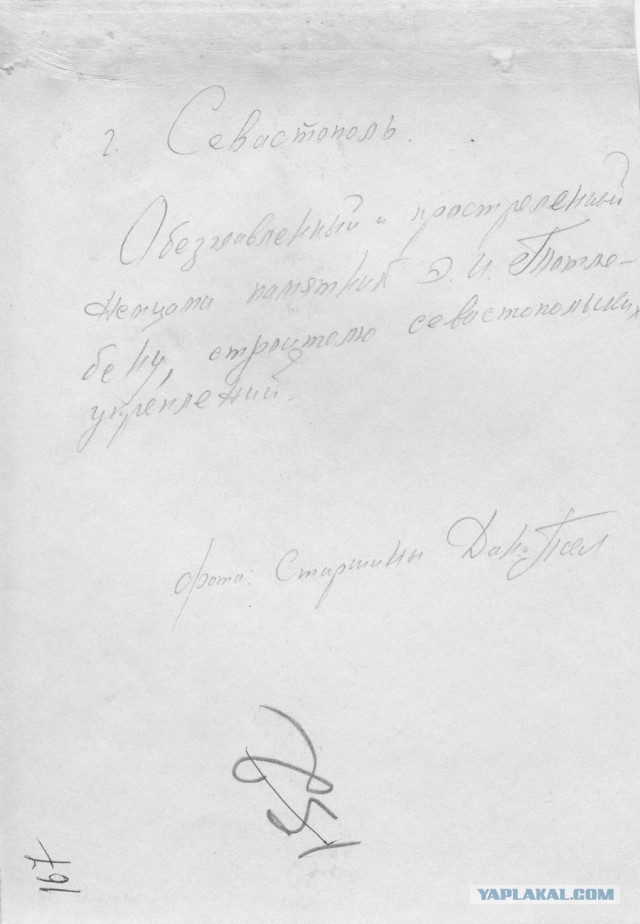 г. Севастополь.
Обезглавленный и простреленный
немцами памятник Э. И. Тотле-
бену, строителю севастопольских
укреплений.
фото: Старшины
167
YAPLAKAL.COM